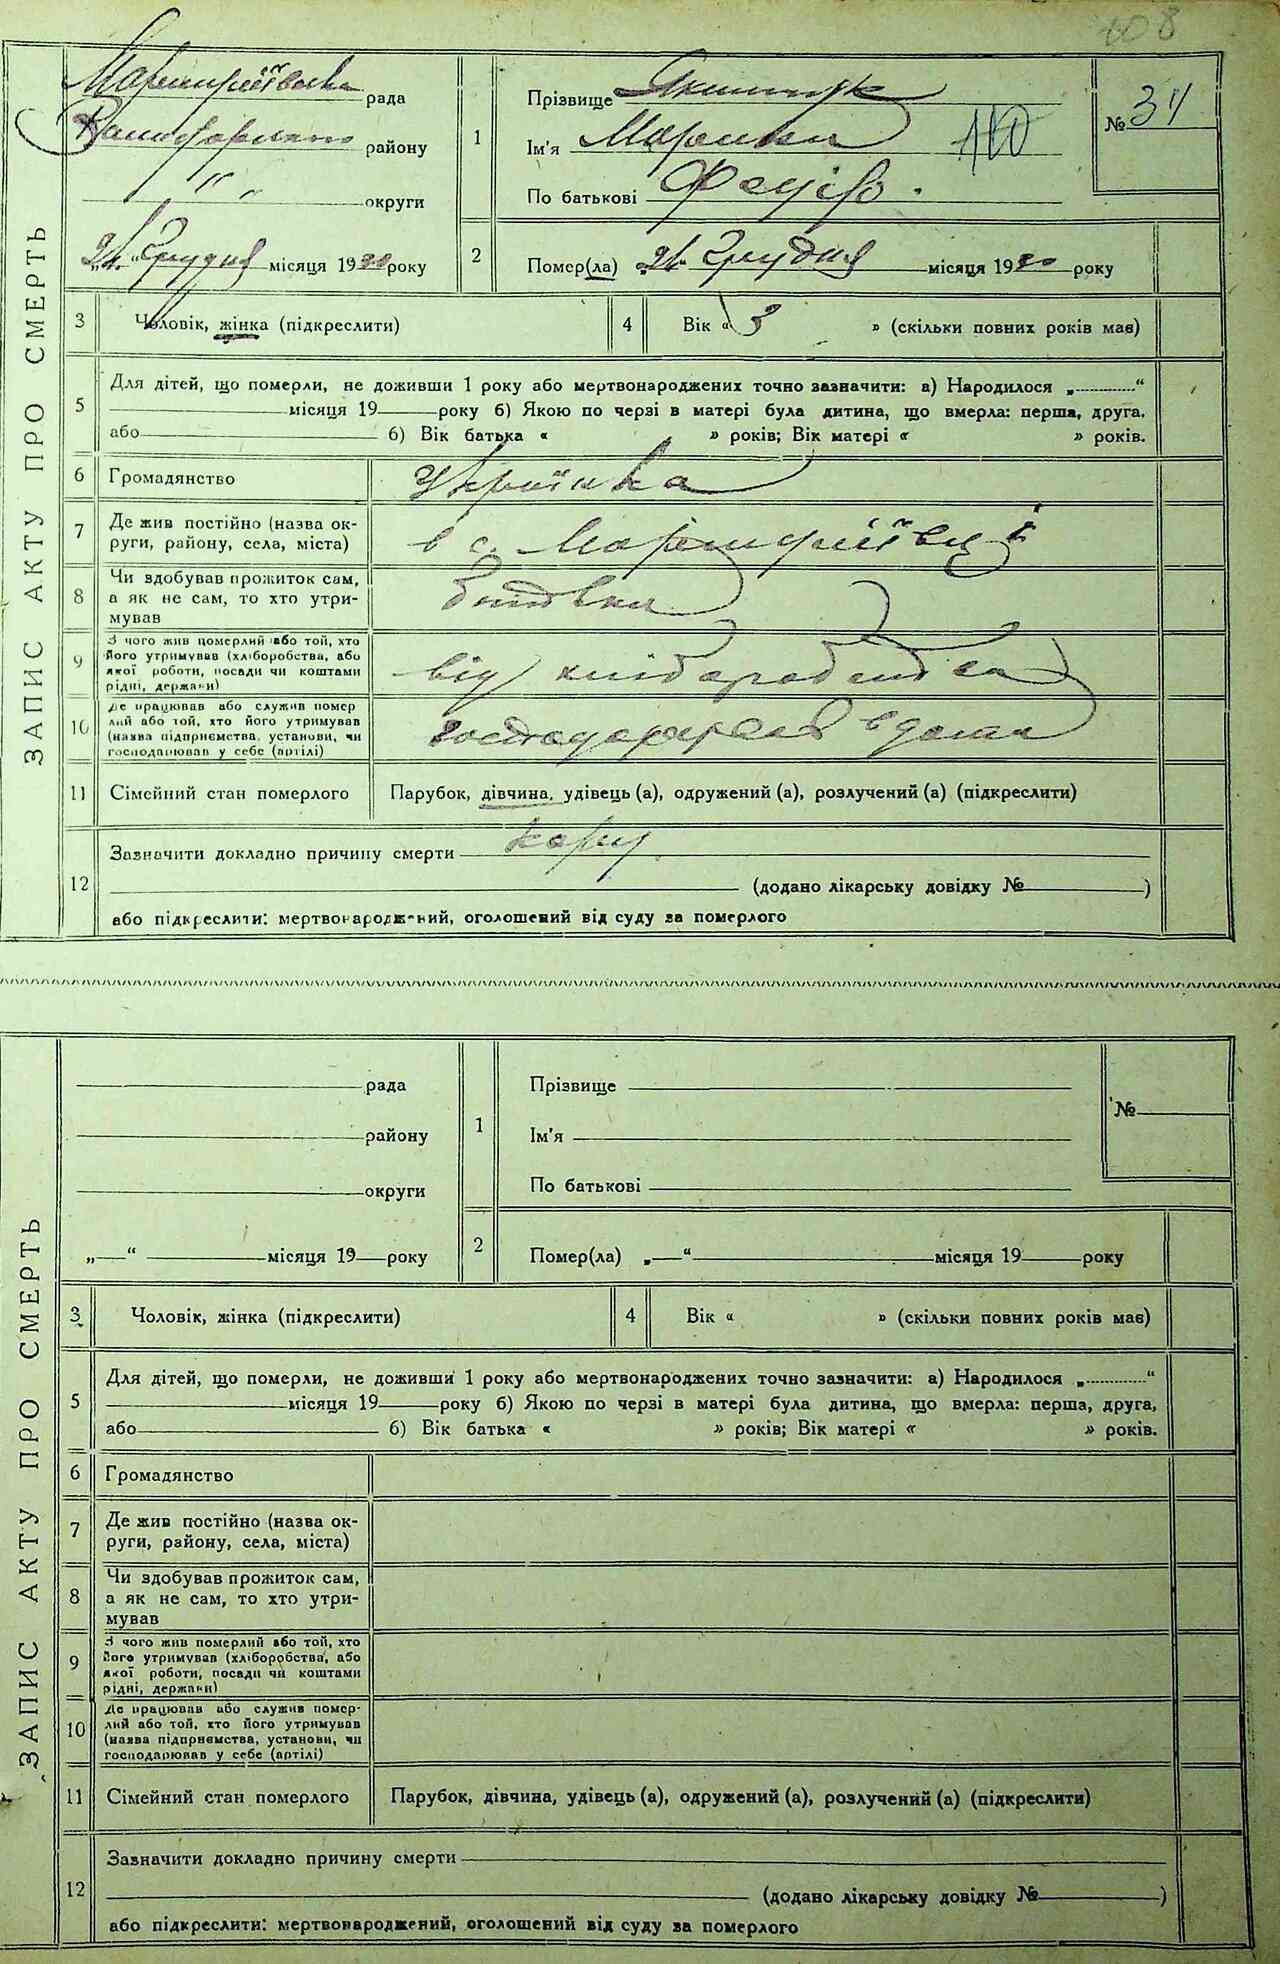 108
ЗАПИС АКТУ ПРО СМЕРТЬ
рада
району
" " округи
Грудня місяця 1930 року
1
Прізвище Якимчук
Ім'я Марина
По батькові
№ 34
2
Помер(ла) Грудня місяця 1930 року
3
Чоловік, жінка (підкреслити)
4
Вік « 3 » (скільки повних років має)
5
Для дітей, що померли, не доживши 1 року або мертвонароджених точно зазначити: а) Народилося „ “
місяця 19 року б) Якою по черзі в матері була дитина, що вмерла: перша, друга,
або б) Вік батька « » років; Вік матері « » років.
6
Громадянство Українка
7
Де жив постійно (назва ок-
руги, району, села, міста)
в с.
8
Чи здобував прожиток сам,
а як не сам, то хто утри-
мував
батьки
9
З чого жив померлий або той, хто
його утримував (хліборобства, або
якої роботи, посади чи коштами
рідні, держави)
від хліборобства
10
Де працював або служив помер
лий або той, хто його утримував
(назва підприємства, установи, чи
господарював у себе (артілі)
вдома
11
Сімейний стан померлого
Парубок, дівчина, удівець (а), одружений (а), розлучений (а) (підкреслити)
12
Зазначити докладно причину смерти кору
(додано лікарську довідку № )
або підкреслити: мертвонароджений, оголошений від суду за померлого
ЗАПИС АКТУ ПРО СМЕРТЬ
рада
району
округи
„ “ місяця 19 року
1
Прізвище
Ім'я
По батькові
№
2
Помер(ла) „ “ місяця 19 року
3
Чоловік, жінка (підкреслити)
4
Вік « » (скільки повних років має)
5
Для дітей, що померли, не доживши 1 року або мертвонароджених точно зазначити: а) Народилося „ “
місяця 19 року б) Якою по черзі в матері була дитина, що вмерла: перша, друга,
або б) Вік батька « » років; Вік матері « » років.
6
Громадянство
7
Де жив постійно (назва ок-
руги, району, села, міста)
8
Чи здобував прожиток сам,
а як не сам, то хто утри-
мував
9
З чого жив померлий або той, хто
його утримував (хліборобства, або
якої роботи, посади чи коштами
рідні, держави)
10
Де працював або служив помер-
лий або той, хто його утримував
(назва підприємства, установи, чи
господарював у себе (артілі)
11
Сімейний стан померлого
Парубок, дівчина, удівець (а), одружений (а), розлучений (а) (підкреслити)
12
Зазначити докладно причину смерти
(додано лікарську довідку № )
або підкреслити: мертвонароджений, оголошений від суду за померлого